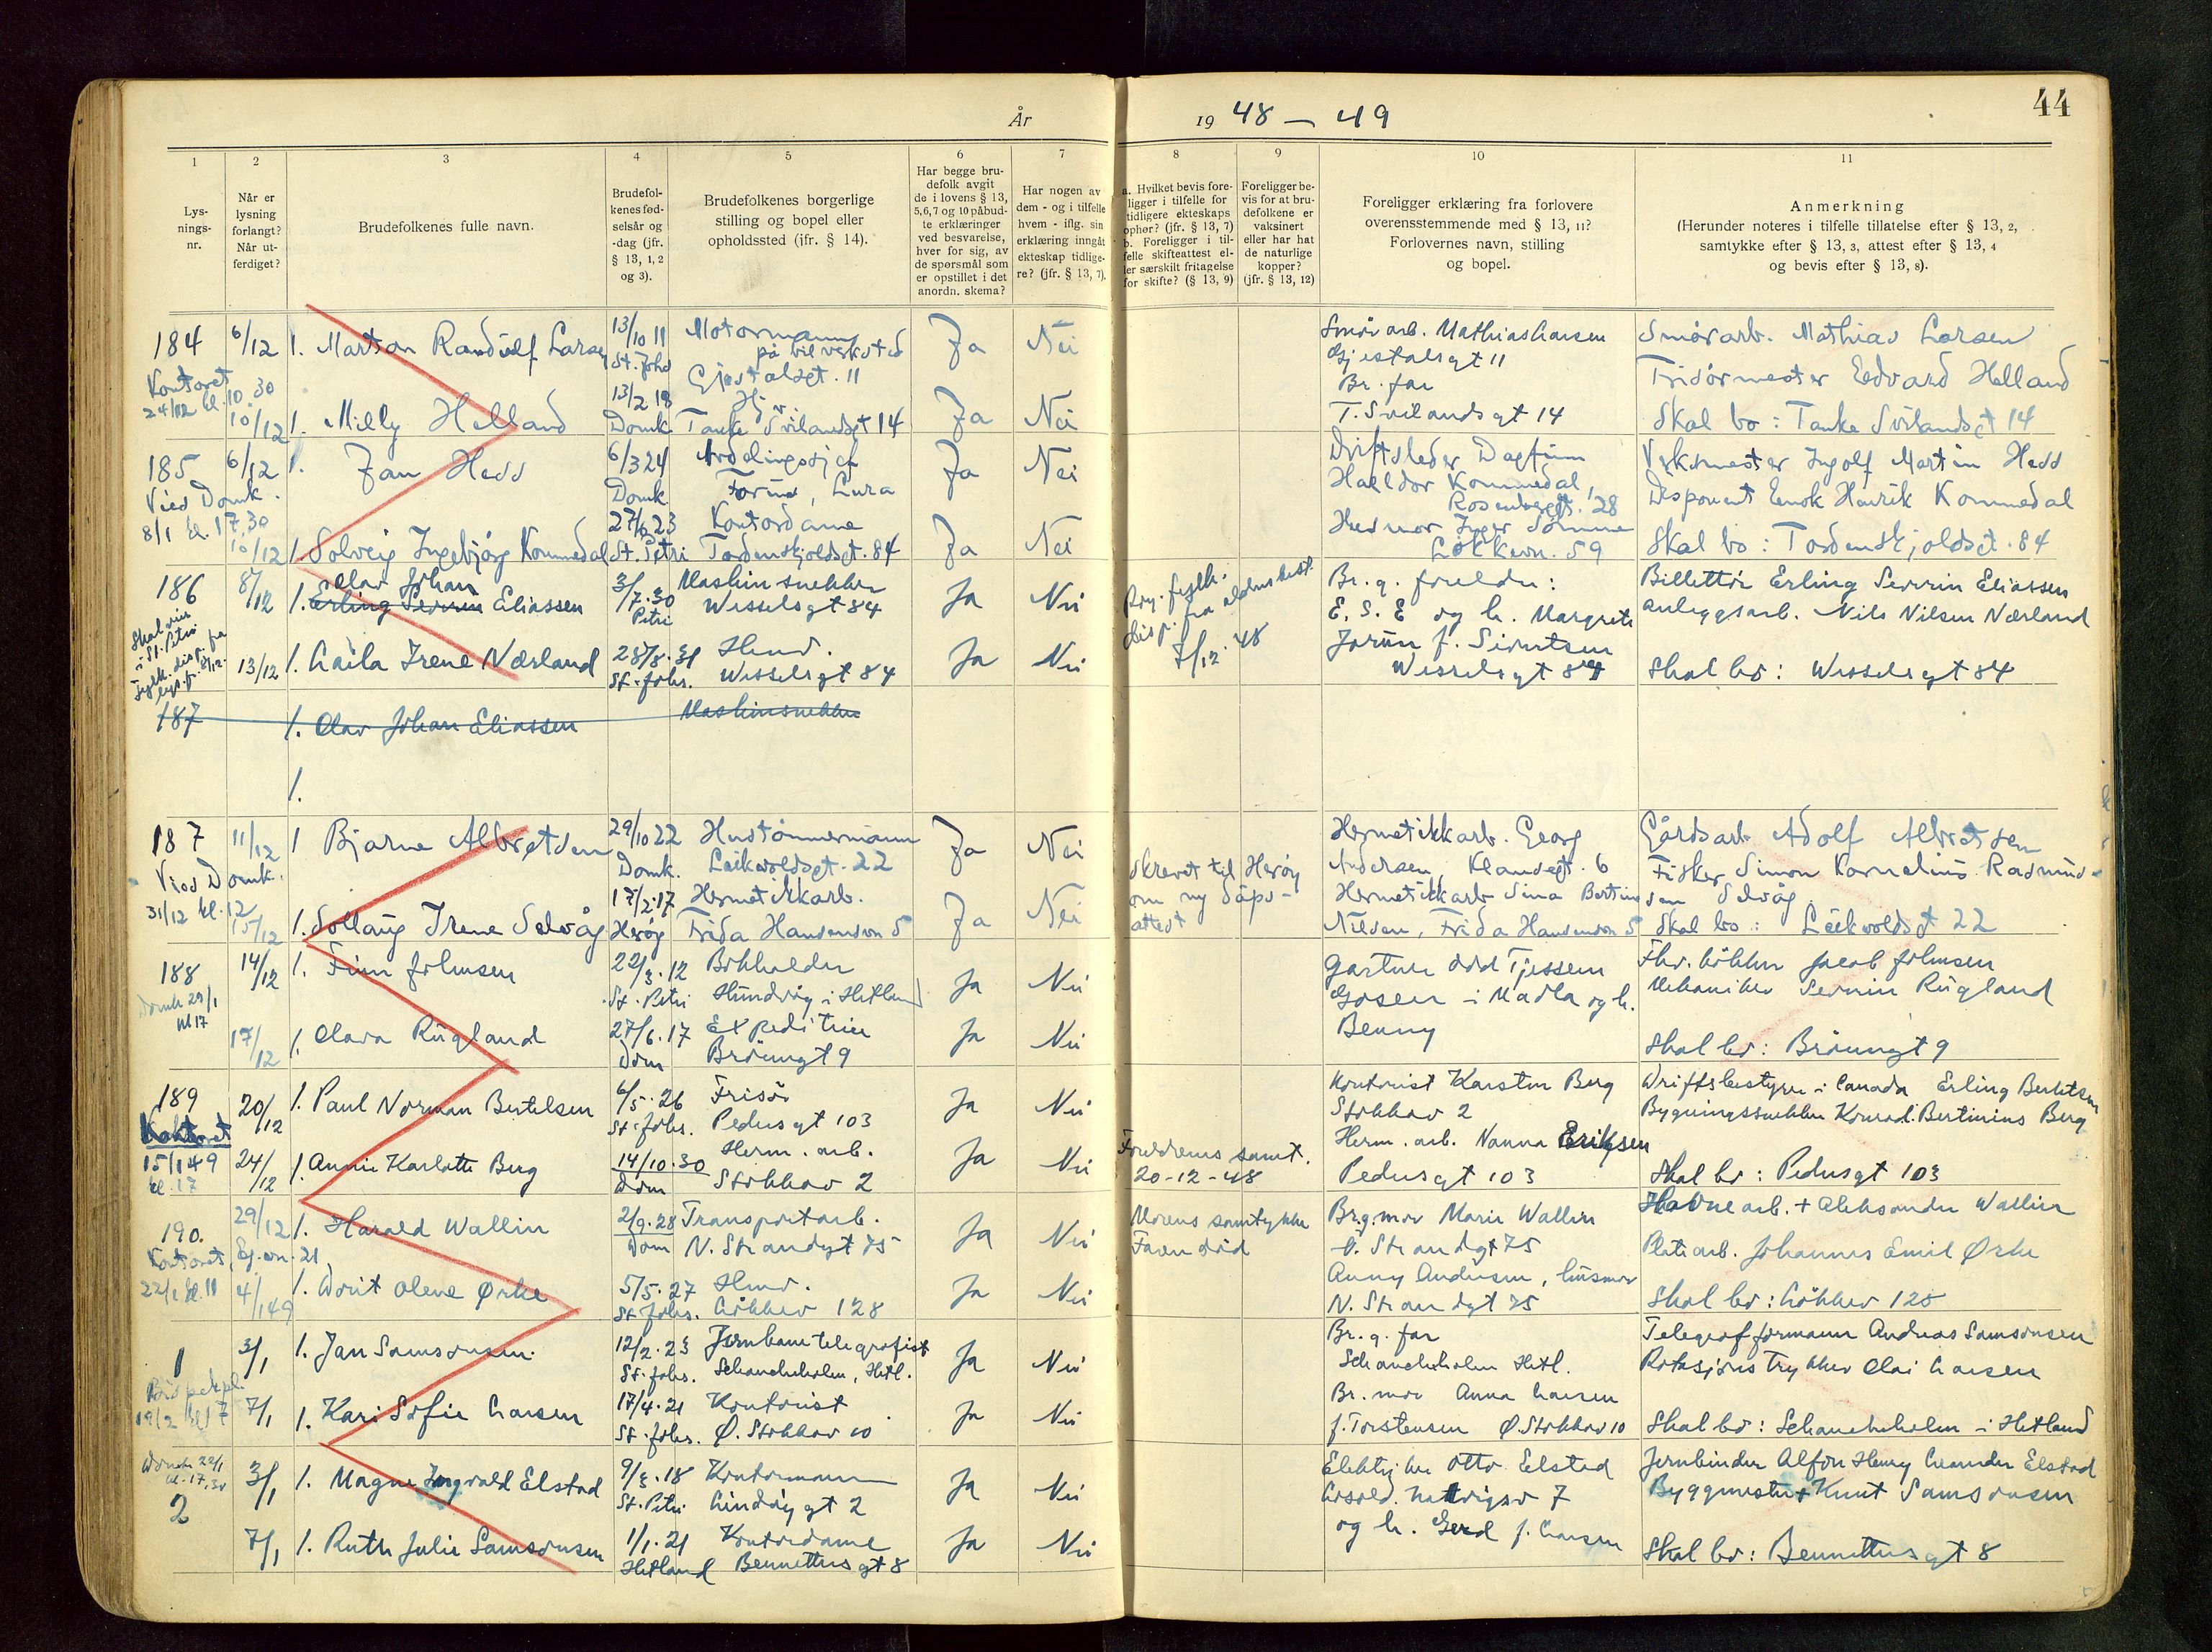 44
År 19 48 – 49
1
Lys-
nings-
nr.
2
Når er
lysning
forlangt?
Når ut-
ferdiget?
3
Brudefolkenes fulle navn.
4
Brudefol-
kenes fød-
selsår og
-dag (jfr.
§ 13, 1, 2
og 3).
5
Brudefolkenes borgerlige
stilling og bopel eller
opholdssted (jfr. § 14).
6
Har begge bru-
defolk avgit
de i lovens § 13,
5,6,7 og 10 påbud-
te erklæringer
ved besvarelse,
hver for sig, av
de spørsmål som
er opstillet i det
anordn. skema?
7
Har nogen av
dem - og i tilfelle
hvem - iflg. sin
erklæring inngåt
ekteskap tidlige-
re? (jfr. § 13, 7).
8
a. Hvilket bevis fore-
ligger i tilfelle for
tidligere ekteskaps
ophør? (jfr. § 13, 7)
b. Foreligger i til-
felle skifteattest el-
ler særskilt fritagelse
for skifte? (§ 13, 9)
9
Foreligger be-
vis for at bru-
defolkene er
vaksinert
eller har hat
de naturlige
kopper?
(jfr. § 13, 12)
10
Foreligger erklæring fra forlovere
overensstemmende med § 13, 11?
Forlovernes navn, stilling
og bopel.
11
Anmerkning
(Herunder noteres i tilfelle tillatelse efter § 13, 2,
samtykke efter § 13, 3, attest efter § 13, 4
og bevis efter § 13, 8).
184
Kontoret
24/12 kl. 10.30
6/12
10/12
1. Marton Randulf Larsen
13/10 11
St. Johs
Motormann
på bilverksted
Gjestalsgt. 11
Ja
Nei
1. Milly Helland
13/2 18
Domk
Hj
Tanke Svilandsgt 14
Ja
Nei
Smørarb. Mathias Larsen
Gjestalsgt 11
Br. far
T. Svilandsgt 14
Smørarb. Mathias Larsen
Frisørmester Edvard Helland
Skal bo: Tanke Svilandsgt 14
185
Vies Domk.
8/1 kl. 17.30
6/12
10/12
1. Jan Hess
6/3 24
Domk
Avdelingssjef
Forus, Lura
Ja
Nei
1. Solveig Ingebjørg Kommedal
27/6 23
St. Petri
Kontordame
Tordenskjoldsgt. 84
Ja
Nei
Driftsleder Dagfinn
Halldor Kommedal,
Rosenbergt. 28
Husmor Inger Sømme
Løkkevn. 59
Verksmester Ingolf Martin Hess
Disponent Henrik Kommedal
Skal bo: Tordenskjoldsgt. 84
186
Skal vies
i St. Petri
8/12
13/12
Olav Johan
1. Erling Severin Eliassen
3/7.30
Petri
Maskinsnekker
Wesselsgt 84
Ja
Nei
1. Laila Irene Nærland
28/8.31
St. Johs.
Husd.
Wesselsgt 84
Ja
Nei
7/12.48
Br. g. foreldre:
E. S. E og h. Margrete
Jorunn f. Sivertsen
Wesselsgt 84
Billettør Erling Severin Eliassen
anleggsarb. Nils Nilsen Nærland
Skal bo: Wesselsgt 84
187
1. Olav Johan Eliassen
Maskinsnekker
1.
187
Vies Domk.
31/12 kl. 12
11/12
15/12
1 Bjarne Albretsen
29/10 22
Domk.
Hustømmermann
Leikvoldsgt. 22
Ja
Nei
1. Sollaug Irene Selvåg
17/2.17
Herøy
Hermetikkarb.
Frida Hansensvn 5
Ja
Nei
Skrevet til Herøy
om ny dåps-
attest
Hermetikkarb. Georg
Andersen, Klandsgt. 6
Hermetikkarb Sina Bertine
Nilsen, Frida Hansensvn 5
Gårdsarb Adolf Albretsen
Fisker Simon Kornelius Rasmus-
sen Selvåg.
Skal bo: Leikvoldsgt 22
188
Domk 29/1
kl 17
14/12
17/12
1. Finn Johnsen
22/3.12
St. Petri
Bokholder
Hundvåg i Hetland
Ja
Nei
1. Clara Rugland
27/6.17
Dom
Expeditrise
Brøungt 9
Ja
Nei
Gartner Odd Tjessem
Gosen i Madla og h.
Benny
Fhv. bøkker Jacob Johnsen
Mekaniker Severin Rugland
Skal bo: Brøungt 9
189
Kontoret
15/1 49
kl. 17
20/12
24/12
1. Paul Norman Bertelsen
6/5.26
St. Johs.
Frisør
Pedersgt 103
Ja
Nei
1. Annie Karlotte Berg
14/10.30
Dom
Herm. arb.
Stokkav 2
Ja
Nei
Foreldrenes samt.
20-12-48
Kontorist Karsten Berg
Stokkav 2
Herm. arb. Nanna Eriksen
Pedersgt 103
Driftsbestyrer i Canada Erling Bertelsen
Bygningssnekker Konrad Bertinius Berg
Skal bo: Pedersgt 103
190.
Kontoret
22/1 kl. 11
29/12
4/1 49
1. Harald Wallin
2/9.28
Dom
Transportarb.
N. Strandgt 75
Ja
Nei
1. Dorit Olene Ørke
5/5.27
St. Johs.
Husd.
Løkkev 128
Ja
Nei
Morens samtykke
Faren død
Br.g. mor Marie Wallin
N. Strandgt 75
Anny Andersen, husmor
N. Strandgt 75
Havnearb. + Aleksander Wallin
Platearb. Johannes Emil Ørke
Skal bo: Løkkev 128
1
Bispekpl.
19/2 kl 17
3/1
7/1
1. Jan Samsonsen
12/2.23
St. Johs.
Jernbanetelegrafist
Schancheholen, Hetl.
Ja
Nei
1. Kari Sofie Larsen
17/4.21
St. Johs.
Kontorist
Ø. Stokkav 10
Ja
Nei
Br. g. far
Schancheholen Hetl.
Br. mor Anna Larsen
f. Torstensen Ø. Stokkav 10
Telegrafformann Andreas Samsonsen
Rotasjonstrykker Olai Larsen
Skal bo: Schancheholen i Hetland
Domk 22/1
kl. 17.30
2
3/1
7/1
1. Magne Ingvald Elstad
9/3.18
St. Petri
Kontormann
Lindøygt 2
Ja
Nei
1. Ruth Julie Samsonsen
1/1.21
Hetland
Kontordame
Bennettersgt 8
Ja
Nei
Elektriker Otto Elstad
7
og h. Gerd f. Larsen
Jernbinder Alfon Henry Leander Elstad
Byggmester + Knut Samsonsen
Skal bo: Bennettersgt 8